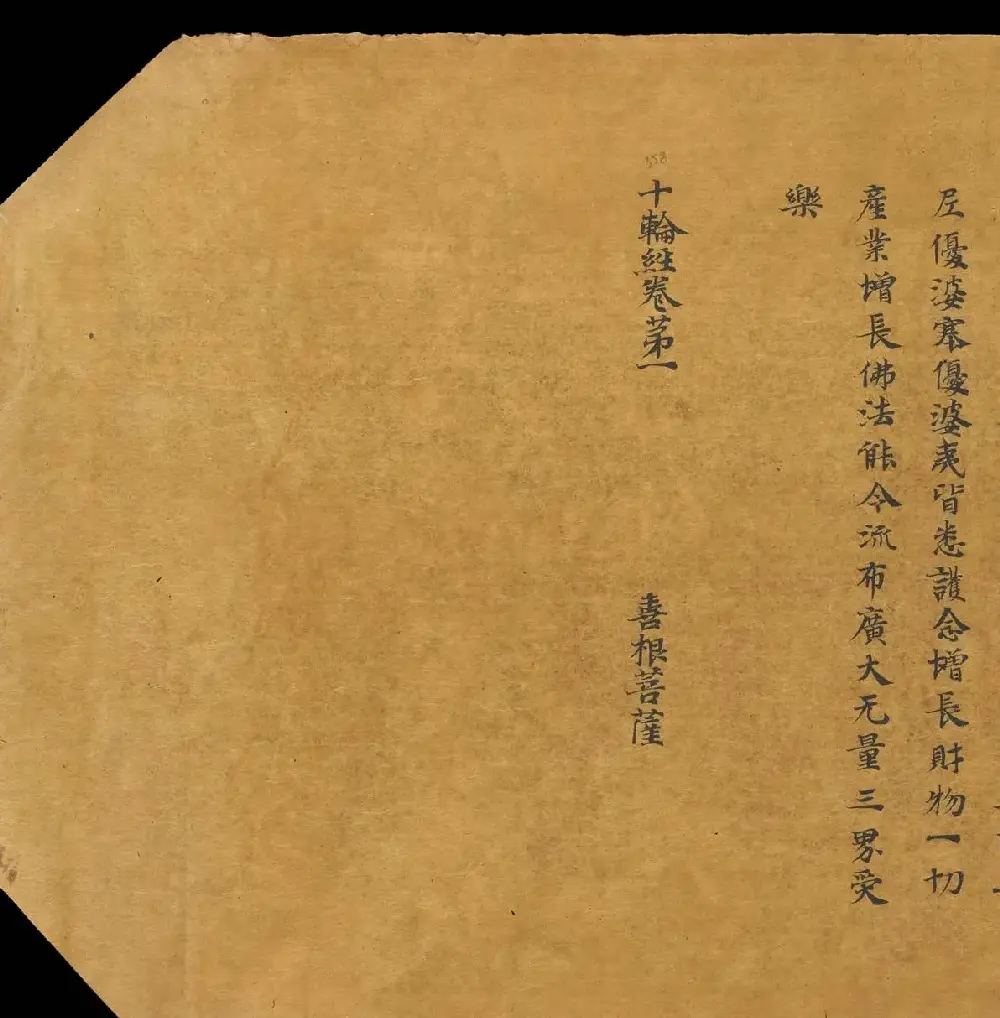 尼優婆塞優婆夷皆悉護念增長財物一切
產業增長佛法能令流布廣大无量三界受
樂
十輪經卷第一
喜根菩薩